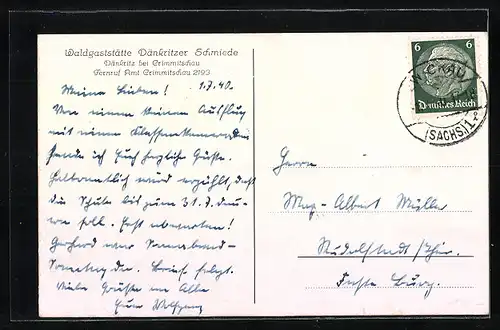 Waldgaststätte Dänkritzer Schmiede
Dänkritz bei Crimmitschau
Fernruf Amt Crimmitschau 2193
Meine Lieben! 1.7.40.
Von einem kleinen Ausflug
mit einem Klassenkameraden
sende ich Euch herzliche Grüße.
wird erzählt, daß
die Schule bis zum 31.7. dau-
ern soll. Erst abwarten!
Gerhard war Sonnabend-
Sonntag da. Brief folgt.
Viele Grüße an Alle
Euer Wolfgang
6 6
Deutsches Reich
ZWICKAU
(SACHS) 1
Herrn
Max-Albert Müller
Rudolstadt/Thür.